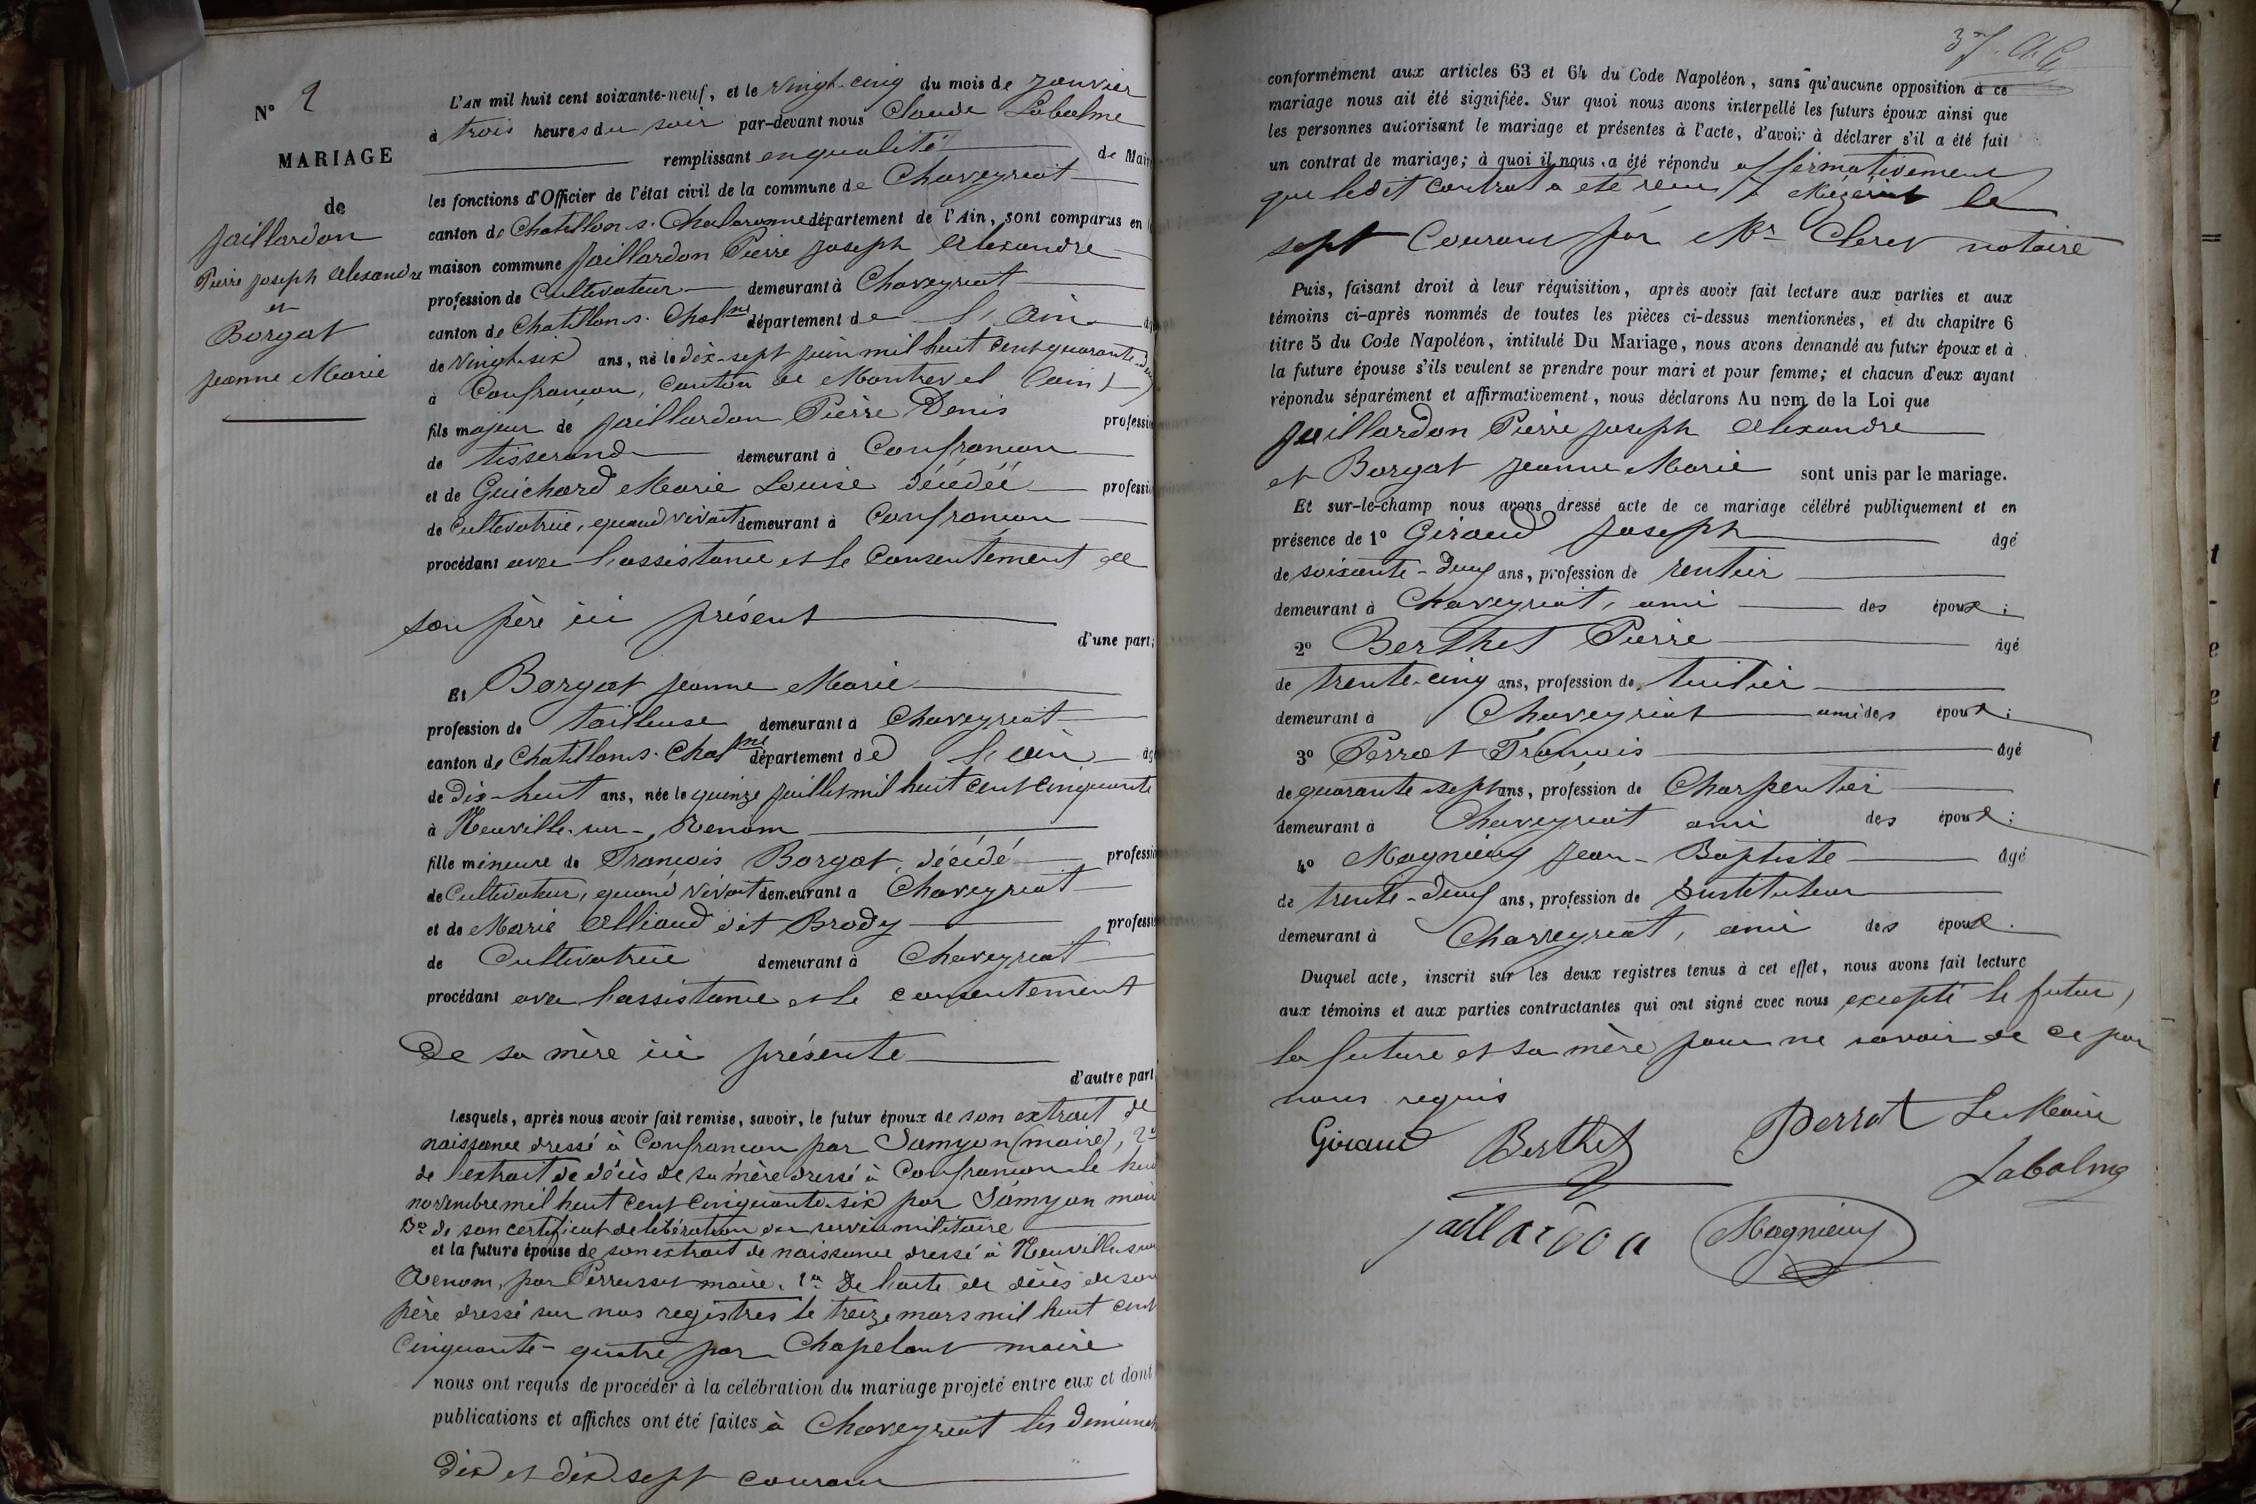 N° 2
MARIAGE
de
Jaillardon
Pierre Joseph Alexandre
et
Borgat
Jeanne Marie
L'AN mil huit cent soixante-neuf, et le vingt-cinq du mois de Janvier
à trois heures du soir par-devant nous Claude Labalme
remplissant en qualité de Mair
les fonctions d'Officier de l'état civil de la commune de Chaveyriat
canton de Chatillon s. Chalaronne département de l'Ain, sont comparus en
maison commune Jaillardon Pierre Joseph Alexandre
profession de Cultivateur demeurant à Chaveyriat
canton de Chatillon s. Chalne département de l'Ain
de vingt-six ans, né le dix-sept juin mil huit cent quarante-deux
à Confrançon, canton de Montrevel (ain)
fils majeur de Jaillardon Pierre Denis professi
de tisserand demeurant à Confrançon
et de Guichard Marie Louise décédée professi
de cultivatrice, quand vivait demeurant à Confrançon
procédant avec l'assistance et le consentement de
son père ici présent
d'une part;
Et Borgat Jeanne Marie
profession de tailleuse demeurant à Chaveyriat
canton de Chatillon s. Chalne département de l'ain âg
de Dix-huit ans, née le quinze juillet mil huit cent cinquante
à Neuville-sur-Renom
fille mineure de François Borgat, décédé professio
de Cultivateur, quand vivait demeurant à Chaveyriat
et de Marie Alliaud dit Brody professi
de Cultivatrice demeurant à Chaveyriat
procédant avec l'assistance et le consentement
De sa mère ici présente
d'autre part
Lesquels, après nous avoir fait remise, savoir, le futur époux de son extrait de
naissance dressé à Confrançon par Samyon (maire), 2°
de l'extrait de décès de sa mère dressé à Confrançon le huit
novembre mil huit cent cinquante-six par Samyon mair
3° de son certificat de libération du service militaire
et la future épouse de son extrait de naissance dressé à Neuville sur
Renom, par Perrusset maire. 2° De l'acte de décès de son
père dressé sur nos registres le treize mars mil huit cent
Cinquante-quatre par Chapelant maire
nous ont requis de procéder à la célébration du mariage projeté entre eux et dont
publications et affiches ont été faites à Chaveyriat les dimanch
dix et dix-sept courant
37. 
conformément aux articles 63 et 64 du Code Napoléon, sans qu'aucune opposition à ce
mariage nous ait été signifiée. Sur quoi nous avons interpellé les futurs époux ainsi que
les personnes autorisant le mariage et présentes à l'acte, d'avoir à déclarer s'il a été fait
un contrat de mariage; à quoi il nous a été répondu affirmativement
que ledit contrat a été reçu à Mézériat le
sept Courant par Mr Cleret notaire
Puis, faisant droit à leur réquisition, après avoir fait lecture aux parties et aux
témoins ci-après nommés de toutes les pièces ci-dessus mentionnées, et du chapitre 6
titre 5 du Code Napoléon, intitulé Du Mariage, nous avons demandé au futur époux et à
la future épouse s'ils veulent se prendre pour mari et pour femme; et chacun d'eux ayant
répondu séparément et affirmativement, nous déclarons Au nom de la Loi que
Jaillardon Pierre Joseph Alexandre
et Borgat Jeanne Marie sont unis par le mariage.
Et sur-le-champ nous avons dressé acte de ce mariage célébré publiquement et en
présence de 1° Giraud Joseph âgé
de soixante-deux ans, profession de rentier
demeurant à Chaveyriat, ami des époux;
2° Berthet Pierre âgé
de trente-cinq ans, profession de tuilier
demeurant à Chaveyriat ami des époux;
3° Perrat François âgé
de quarante-sept ans, profession de Charpentier
demeurant à Chaveyriat ami des époux;
4° Magnieux Jean-Baptiste âgé
de trente-deux ans, profession de Instituteur
demeurant à Chaveyriat, ami des époux.
Duquel acte, inscrit sur les deux registres tenus à cet effet, nous avons fait lecture
aux témoins et aux parties contractantes qui ont signé avec nous excepté le futur,
la future et sa mère pour ne savoir de ce par
nous requis
Giraud Berthet Perrat Le Maire
Labalme
Jaillardon Magnieux